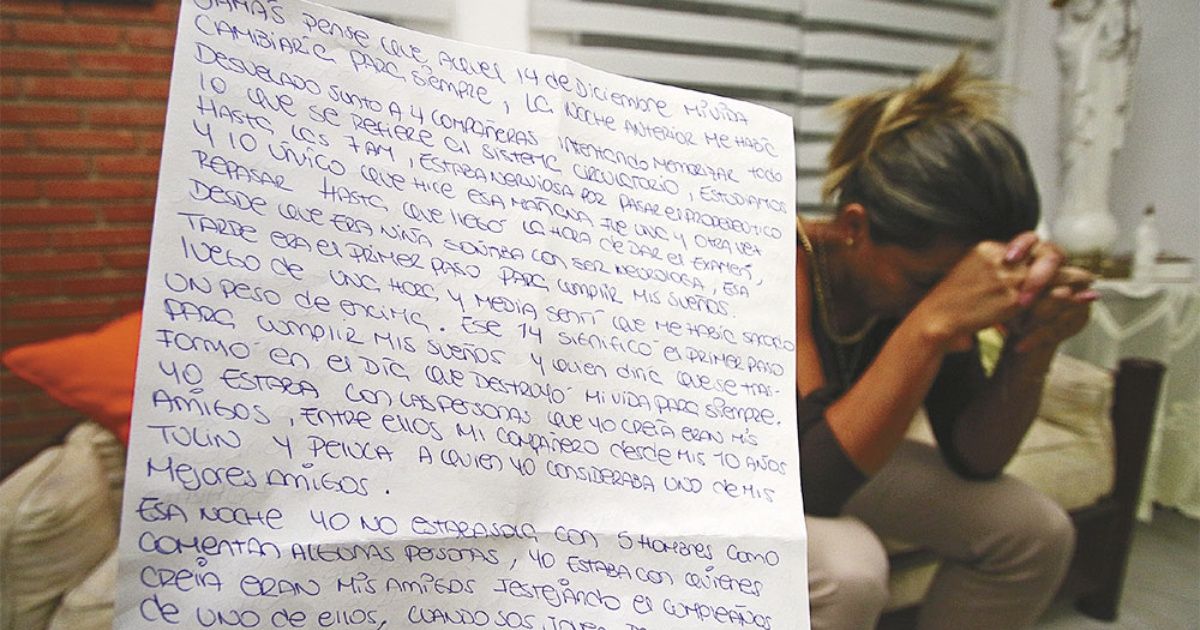 JAMÁS PENSE QUE AQUEL 14 de Diciembre MI VIDA
CAMBIARIA PARA SIEMPRE, LA NOCHE ANTERIOR ME HABIA
DESVELADO JUNTO A 4 COMPAÑERAS INTENTANDO MEMORIZAR TODO
LO QUE SE REFIERE Al SISTEMA CIRCULATORIO, ESTUDIAMOS
HASTA LAS 7AM, ESTABA NERVIOSA POR PASAR El PROPEDEUTICO
Y LO ÚNICO QUE HICE ESA MAÑANA FUE UNA Y OTRA VEZ
REPASAR HASTA QUE LLEGÓ LA HORA DE DAR El EXAMEN,
DESDE QUE ERA NIÑA SOÑABA CON SER NEUROLOGA, ESA
TARDE ERA El PRIMER PASO PARA CUMPLIR MIS SUEÑOS.
LUEGO DE UNA HORA Y MEDIA SENTÍ QUE ME HABIA SACADO
UN PESO DE ENCIMA. ESE 14 SIGNIFICÓ El PRIMER PASO
PARA CUMPLIR MIS SUEÑOS Y QUIEN DIRIA QUE SE TRAS-
FORMÓ EN El DÍA QUE DESTROYÓ MI VIDA PARA SIEMPRE.
YO ESTABA CON LAS PERSONAS QUE YO CREÍA ERAN MIS
AMIGOS, ENTRE ELLOS MI COMPAÑERO DESDE MIS 10 AÑOS
TULIN Y PELUCA A QUIEN YO CONSIDERABA UNO DE MIS
MEJORES AMIGOS.
ESA NOCHE YO NO ESTABA SOLA CON 5 HOMBRES COMO
COMENTAN ALGUNAS PERSONAS, YO ESTABA CON QUIENES
CREÍA ERAN MIS AMIGOS FESTEJÁNDO El CUMPLEAÑOS
DE UNO DE ELLOS, CUANDO